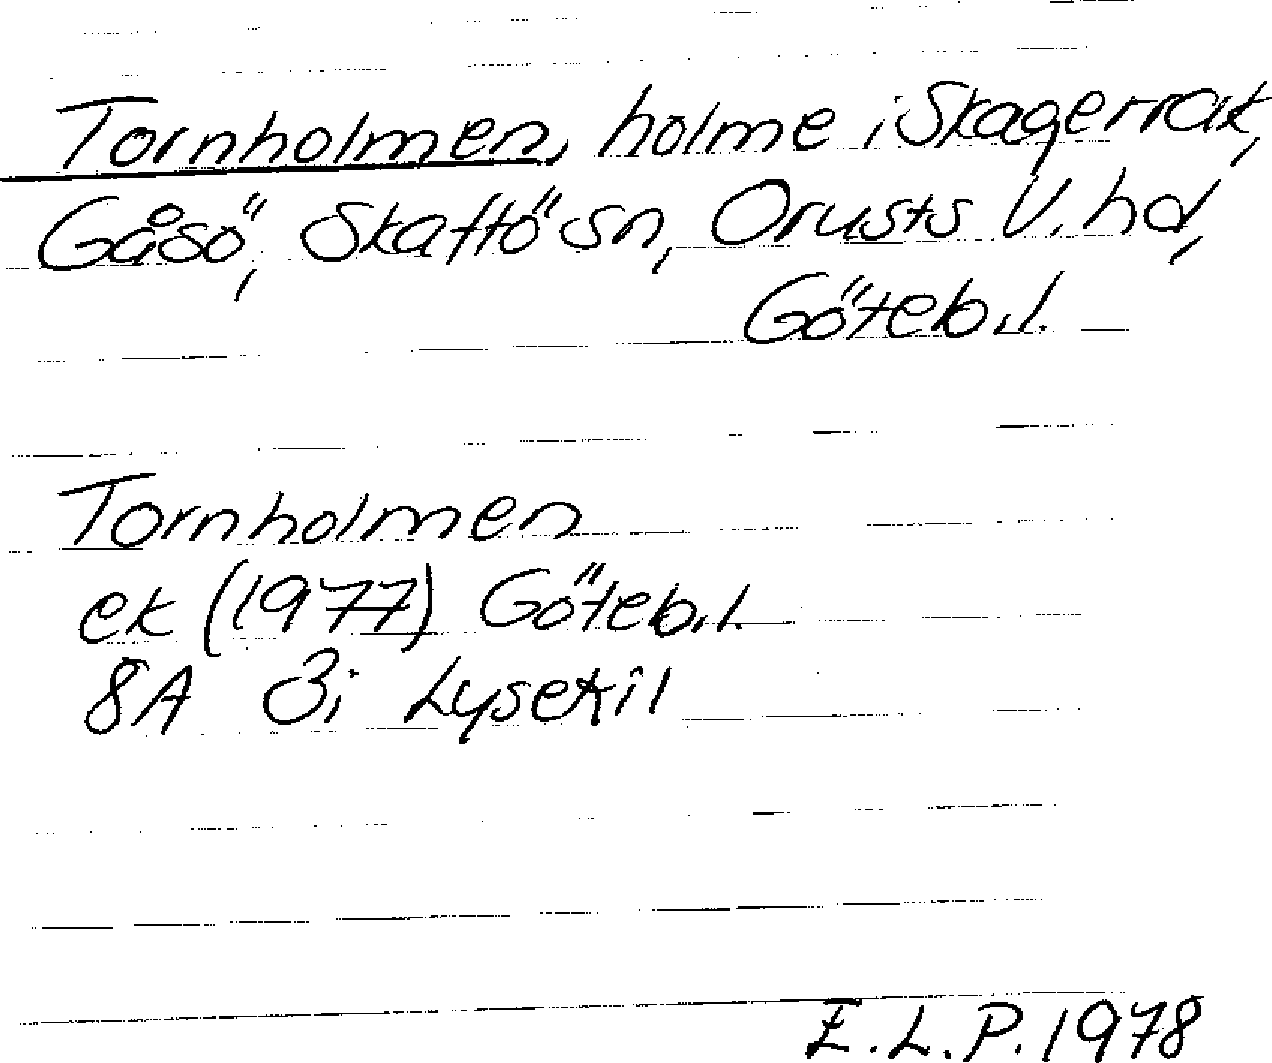 Tornholmen, holme i Skagerrak,
Gåsö, Skaftö sn, Orusts V. hd,
Göteb.l.
Tornholmen
ek (1977) Göteb.l.
8A 3i Lysekil
E.L.P. 1978